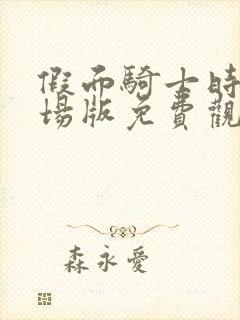 假面騎士時
場版免費觀
森永愛